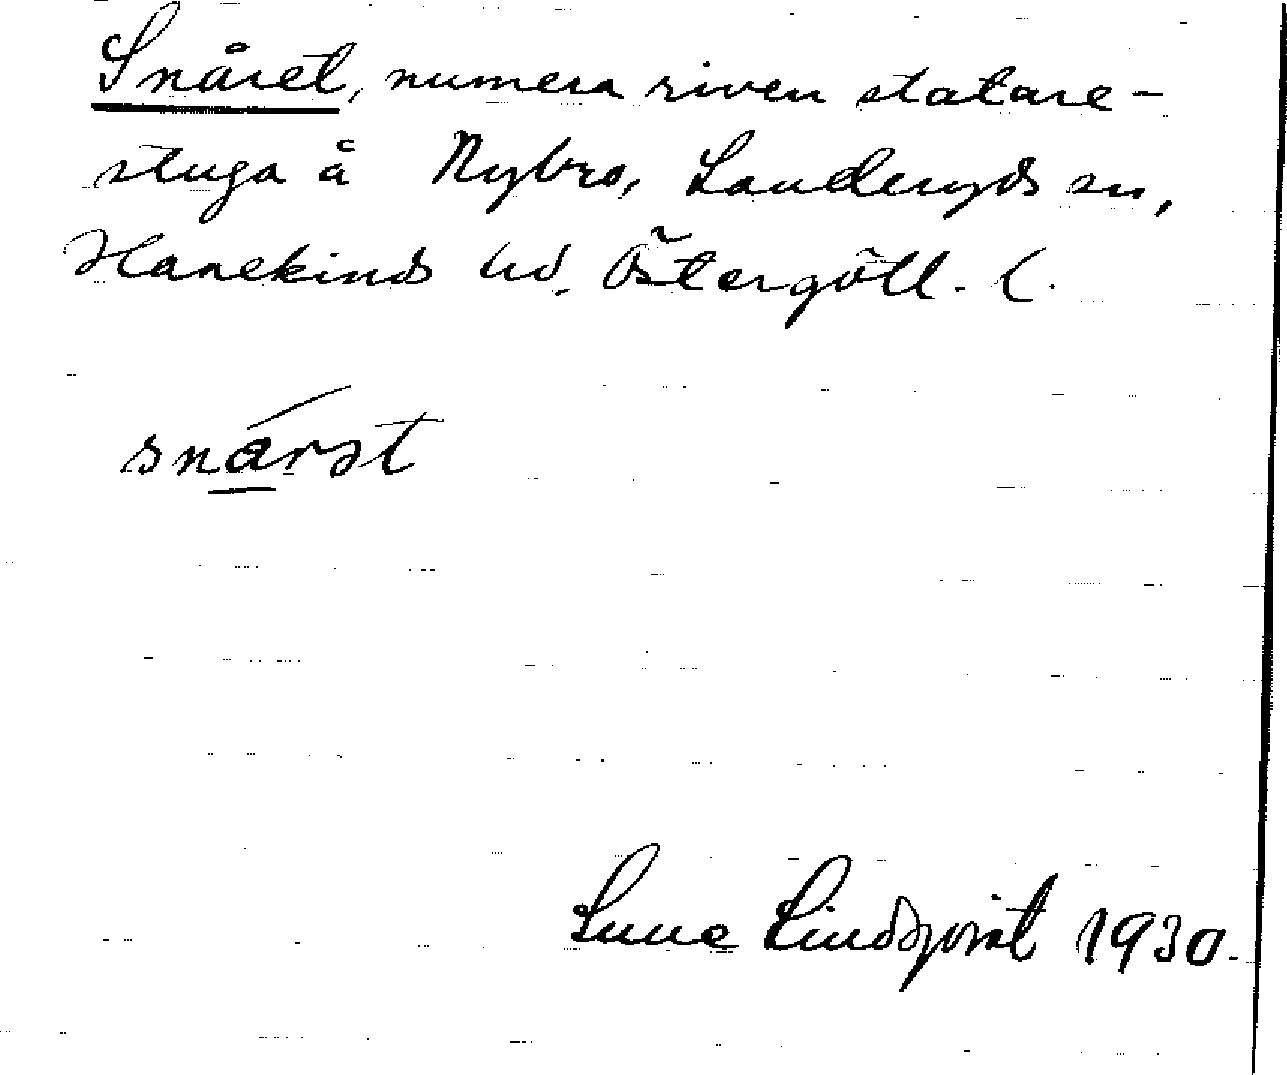 Snåret, numera riven statare-
stuga å Nybro, Landeryds sn,
Hanekinds hd, Östergötl. l.
snárət
Sune Lindqvist 1930.